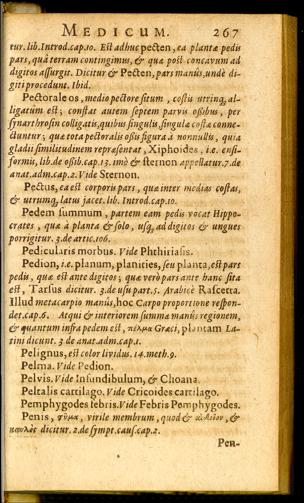 MEDICUM. 267
tur. lib. Introd. cap. 10. Est adhuc pecten, ea plantæ pedis
pars, qua terram contingimus, & quæ post concavum ad
digitos assurgit. Dicitur & Pecten, pars manûs, unde di-
giti procedunt. Ibid.
Pectorale os, medio pectore situm, costis utrinq, al-
ligatum est; constat autem septem parvis oßibus, per
synarthrosin colligatis, quibus singulis, singulæ costæ conne-
ctuntur; quæ tota pectoralis oßis figura à nonnullis, quia
gladii similitudinem repræsentat, Xiphoides, i.e. ensi-
formis, lib. de oßib. cap. 13. imò & sternon appellatur. 7. de
anat. adm. cap. 2. Vide Sternon.
Pectus, ea est corporis pars, quæ inter medias costas,
& utrumq, latus jacet. lib. Introd. cap. 10.
Pedem summum, partem eam pedis vocat Hippo-
crates, quæ à planta & solo, usq, ad digitos & ungues
porrigitur. 3. de artic. 106.
Pedicularis morbus. Vide Phthiriasis.
Pedion, i.e. planum, planities, seu planta, est pars
pedis, quæ est ante digitos; quæ verò pars ante hanc sita
est, Tarsus dicitur. 3. de usu part. 5. Arabicè Rascetta.
Illud metacarpio manûs, hoc Carpo proportione respon-
det. cap. 6. Atqui & interiorem summæ manûs regionem,
& quantum infra pedem est, πέλμα Græci, plantam La-
tini dicunt. 3 de anat. adm. cap. 1.
Pelignus, est color lividus. 14. meth. 9.
Pelma. Vide Pedion.
Pelvis. Vide Infundibulum, & Choana.
Peltalis cartilago. Vide Cricoides cartilago.
Pemphygodes febris. Vide Febris Pemphygodes.
Penis, virile membrum, quod & &
καυλὸς dicitur. 2. de sympt. caus. cap. 2.
Pen-